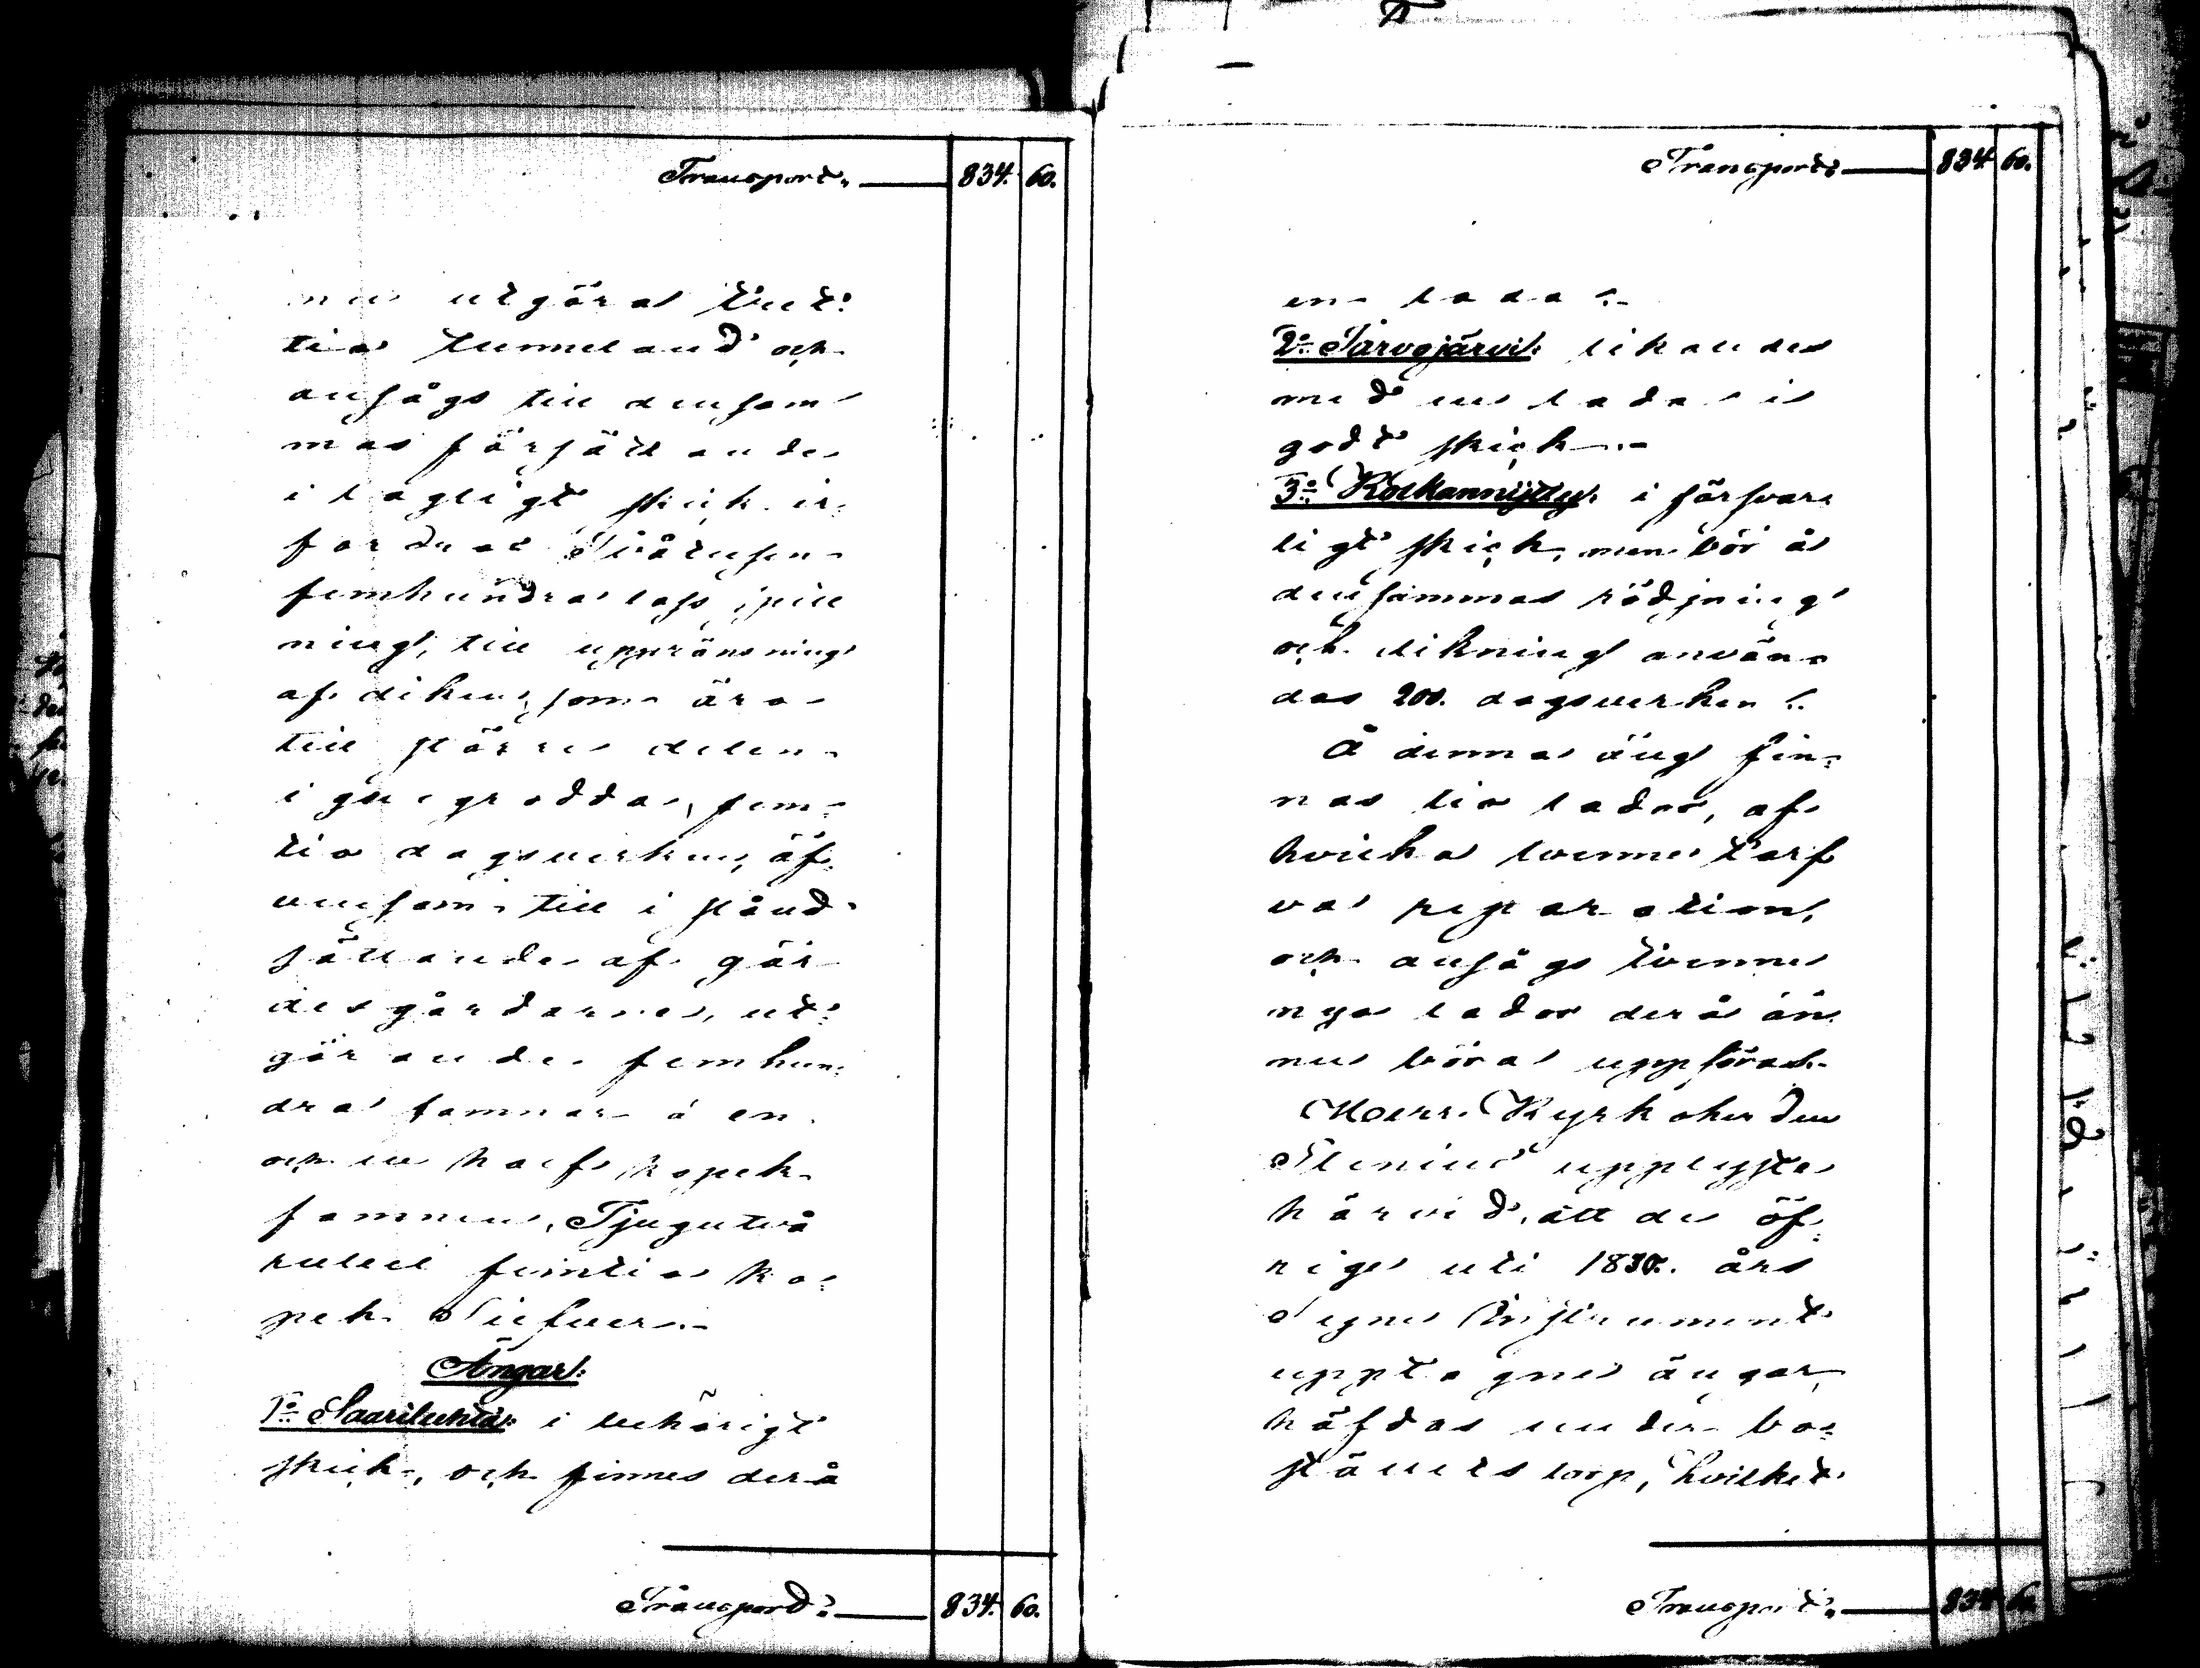 Transport. 834. 60.
nu utgöra tret:
tio tunneland och
ansågs till densam
mas försättande
i lagligt skick er:
fordras Tvåtusen
femhundra lass fyll
ning, till uppränsning
af diken, som äro
till större delen
igengrodda, fem:
tio dagsverken, äf:
vensom till i stånd
sättande af gär
desgårdarne, ut:
görande femhun:
dra famnar á en
och en half kopek
famnen, Tjugutvå
rubel femtio ko:
pek Silfver.
Ängar.
1:o Saariluhta: i behörigt
skick, och finnes derå
Transport. 834. 60.
Transport. 834. 60.
en lada.
2:o Sarvajärvi: likaledes
med en lada i
godt skick.
3:o Koskannijtty: i försvar:
ligt skick, men bör å
densamma rödjning
och dikning använ:
das 200. dagsverken.
Å denna äng fin:
nas tio lador, af
hvilka tvenne tarf
va reparation,
och ansågs tvenne
nya lador derå än:
nu böra uppföras.
Herr Kyrkoherden
Stenius upplyste
härvid, att de öf:
rige uti 1830. års
Syne Instrument
upptagne ängar,
häfdas under bo:
ställets torp, hvilket
Transport. 834 60.